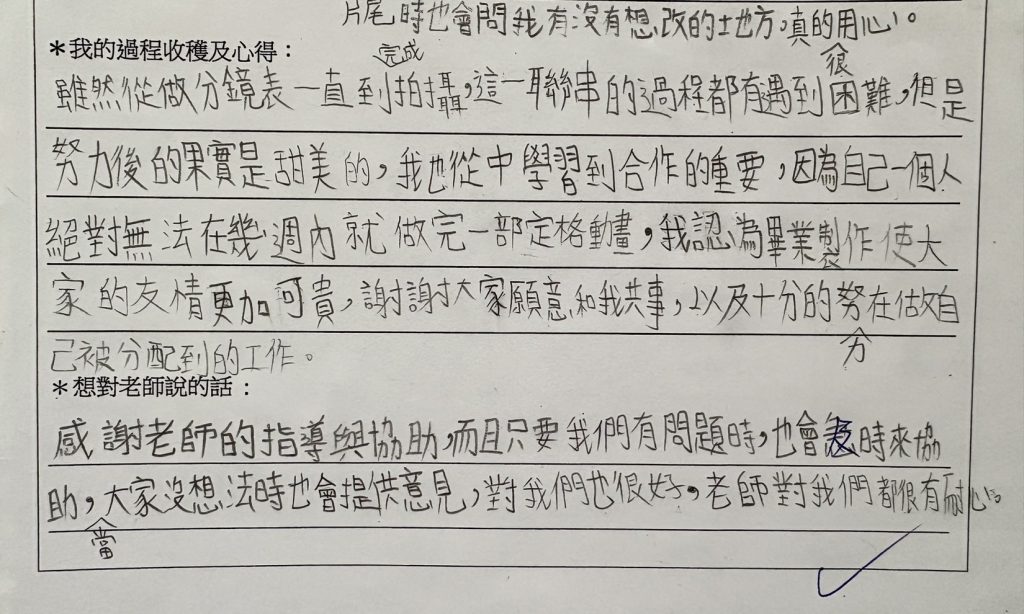 片尾時也會問我有沒有想改的地方,真的用心。
很
*我的過程收穫及心得:
完成
雖然從做分鏡表一直到拍攝,這一聯串的過程都有遇到困難,但是
努力後的果實是甜美的,我也從中學習到合作的重要,因為自己一個人
絕對無法在幾週內就做完一部定格動畫,我認為畢業製作使大
家的友情更加可貴,謝謝大家願意和我共事,以及十分的努在做自
力
己被分配到的工作。
*想對老師說的話:
感謝老師的指導與協助,而且只要我們有問題時,也會及時來協
助,大家沒想法時也會提供意見,對我們也很好。老師對我們都很有耐心。
當